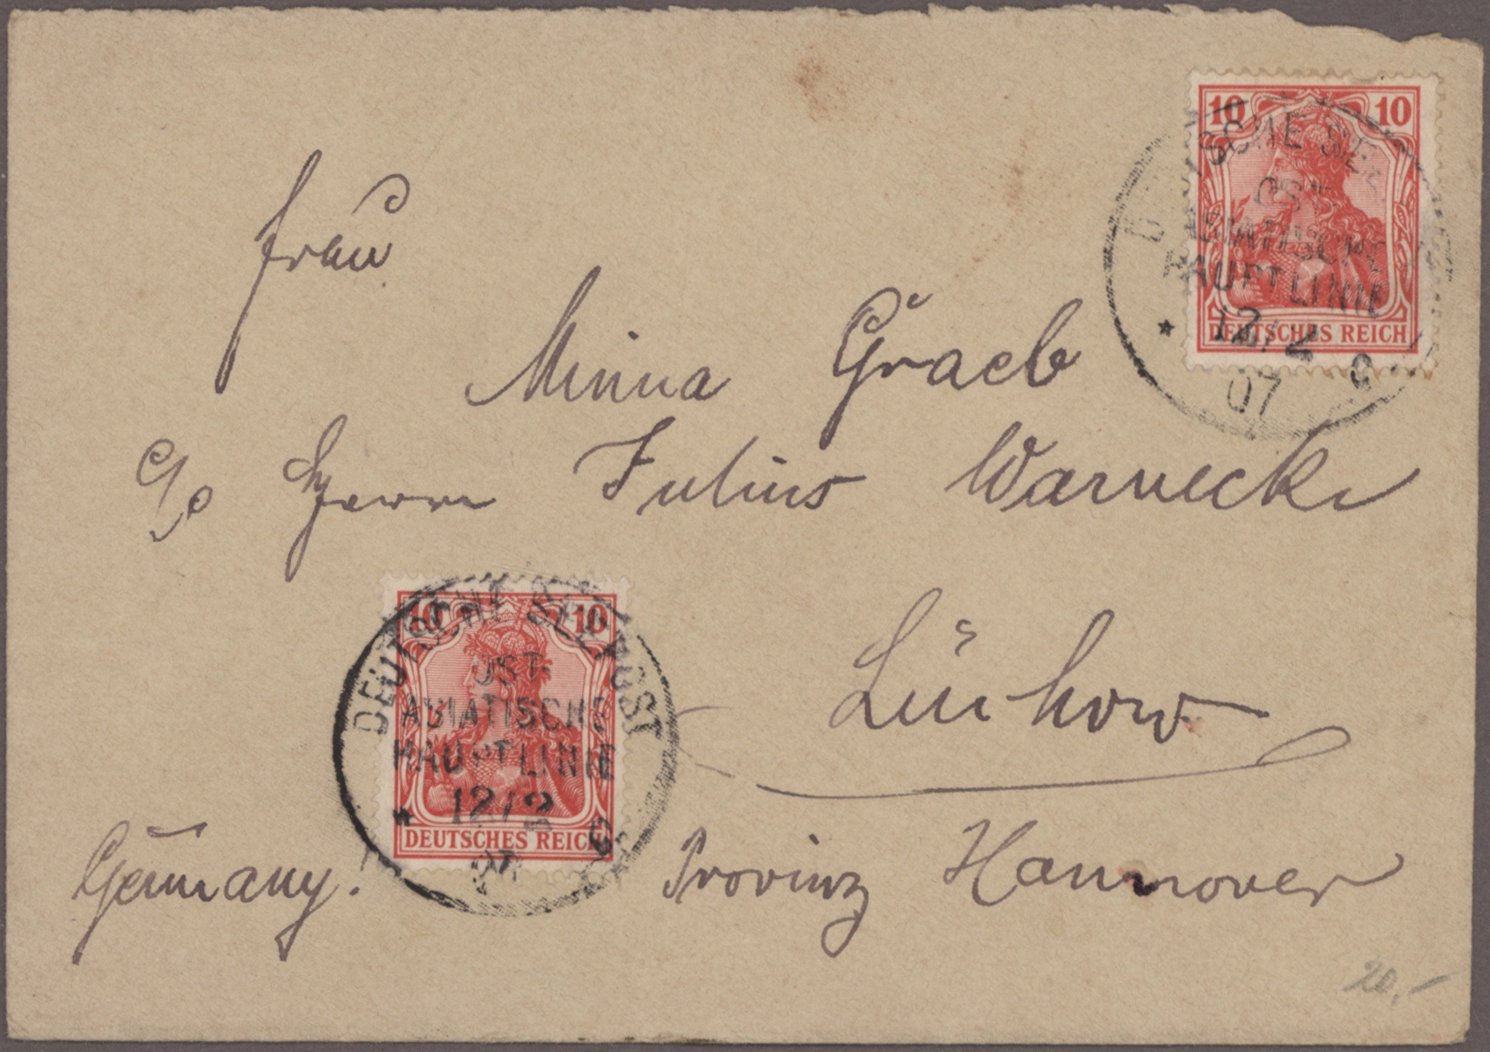 10 10
DEUTSCHE SEE
OST-
ASIATISCHE
HAUPTLINIE
* 12/2 c
07
DEUTSCHES REICH
Frau
Minna Graeb
c/o Herrn Julius Warnecke
Lüchow
10 10
DEUTSCHE SEEPOST
OST-
ASIATISCHE
HAUPTLINIE
* 12/2 c
DEUTSCHES REICH
Germany! Provinz Hannover
20,-